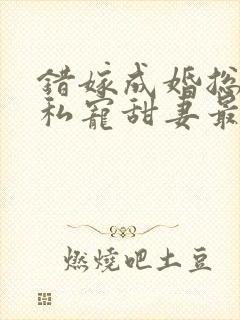 错嫁成婚总
私宠甜妻最
燃燒吧土豆